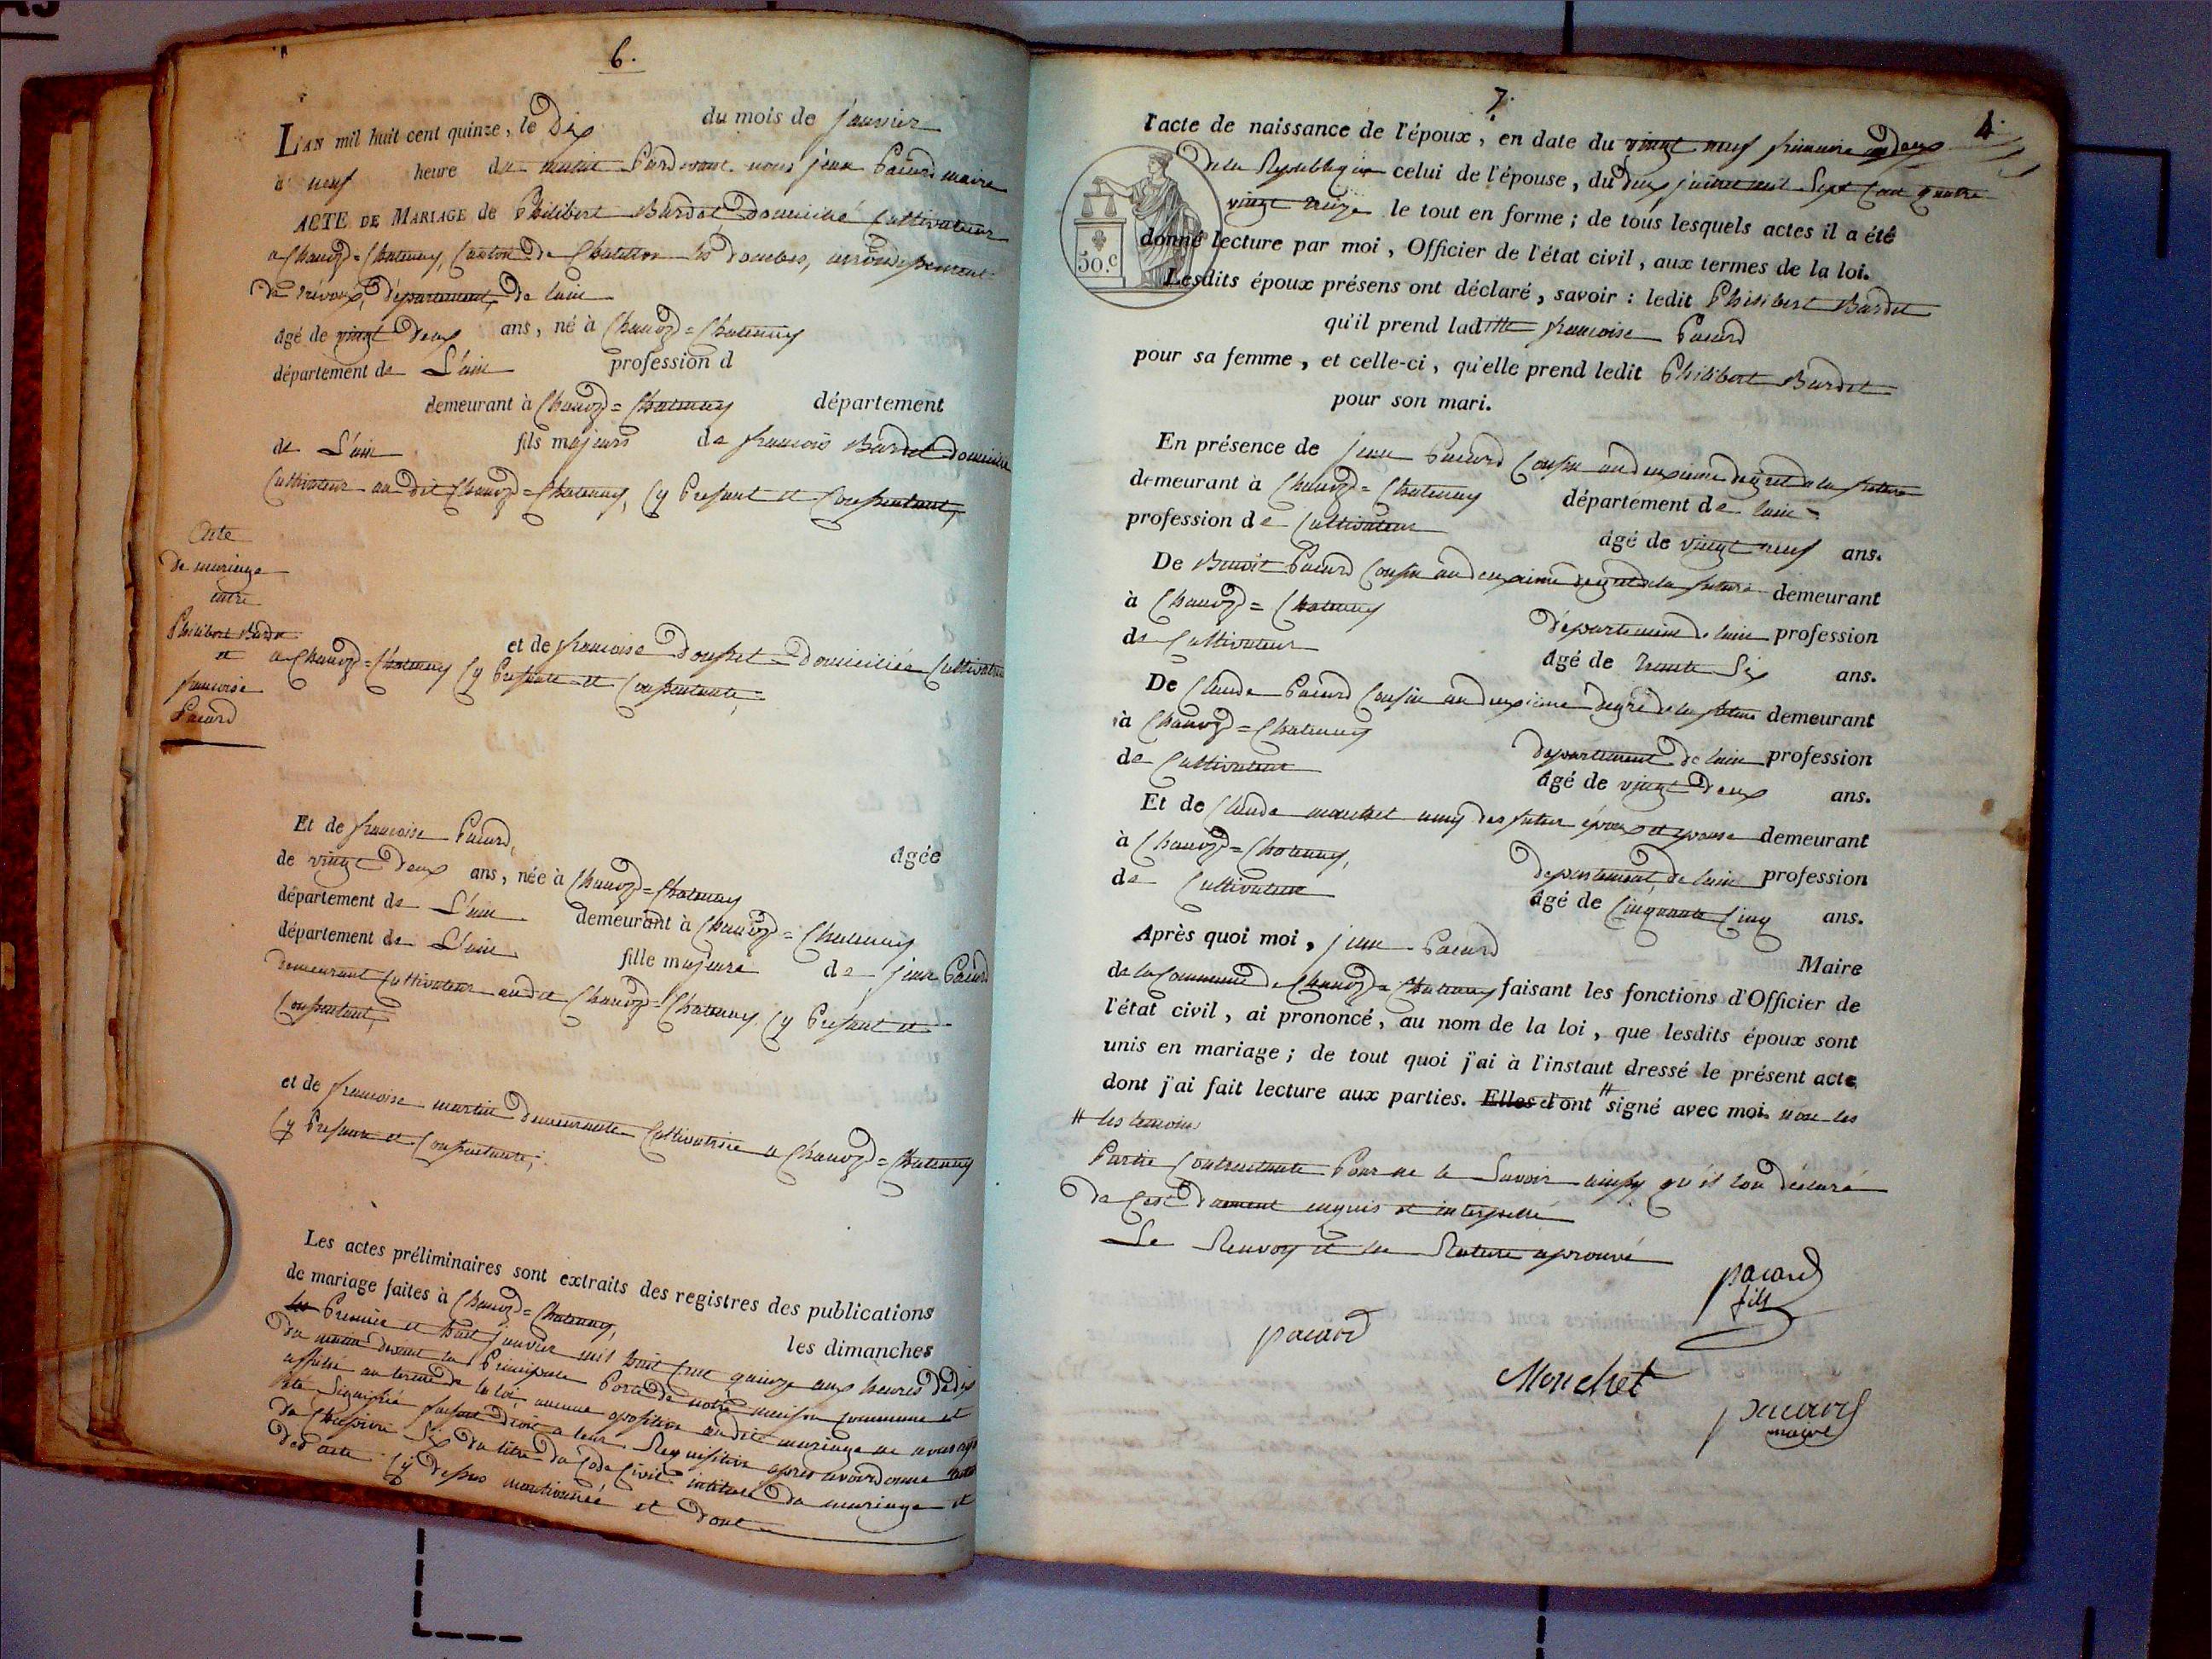 6.
L'AN mil huit cent quinze, le Dix du mois de janvier
à neuf heure du matin Pardevant nous jean Pacard maire
ACTE DE MARIAGE de Philibert Bardet domicilié Cultivateur
a Chanoz=Chatenay, Canton de Chatillon les dombes, arrondissement
de trévoux, département, de lain
âgé de vingt deux ans, né à Chanoz=Chatenay
département de L'ain profession d
demeurant à Chanoz=Chatenay département
de L'ain fils majeurs de francois Bardet domicilié
Cultivateur au dit Chanoz=Chatenay, Cy Present et Consentant,
Acte
de mariage
entre
Philibert Bardet
et
francoise
Pacard
et de francoise domiciliée Cultivatrice
a Chanoz=Chatenay Cy Presente et Consentante,
Et de francoise Pacard, âgée
de vingt deux ans, née à Chanoz=Chatenay
département de L'ain demeurant à Chanoz=Chatenay
département de L'ain fille majeure de jean Pacard
demeurant Cultivateur audit Chanoz=Chatenay Cy Present et
Consentant,
et de francoise martin demeurante Cultivatrice a Chanoz=Chatenay
Cy Presente et Consentante,
Les actes préliminaires sont extraits des registres des publications
de mariage faites à Chanoz=Chatenay,
les dimanches
les Premier et huit janvier mil huit Cent quinze aux heures de dix
du matin devant la Principale Porte de notre maison commune et
affiché au terme de la loi aucune oposition audit mariage ne nous ayant
été Signifiée faisant droit a leur Requisition apres avoir donné
du Chapitre Six du titre du Code Civil intitulé du mariage et
des acte Cy dessus mentionnés et dont
7.
4.
l'acte de naissance de l'époux, en date du vingt neuf frimaire an deux
de la Republique celui de l'épouse, du dix juillet mil Sept Cent quatre
vingt treize le tout en forme; de tous lesquels actes il a été
donné lecture par moi, Officier de l'état civil, aux termes de la loi.
50.c
Lesdits époux présens ont déclaré, savoir: ledit Philibert Bardet
qu'il prend laditte francoise Pacard
pour sa femme, et celle-ci, qu'elle prend ledit Philibert Bardet
pour son mari.
En présence de jean Pacard Cousin au deuxieme degré de la future
demeurant à Chanoz=Chatenay département de lain
profession de Cultivateur âgé de vingt neuf ans.
De Benoit Pacard Cousin au deuxieme degré de la future demeurant
à Chanoz=Chatenay département de lain profession
de Cultivateur âgé de trente Six ans.
De Claude Pacard Cousin au deuxieme degré de la future demeurant
à Chanoz=Chatenay département de lain profession
de Cultivateur âgé de vingt deux ans.
Et de Claude monchet amy des futur époux et epouse demeurant
à Chanoz=Chatenay, département, de lain profession
de Cultivateur âgé de Cinquante Cinq ans.
Après quoi moi, jean Pacard Maire
de la Commune de Chanoz=Chatenay faisant les fonctions d'Officier de
l'état civil, ai prononcé, au nom de la loi, que lesdits époux sont
unis en mariage; de tout quoi j'ai à l'instaut dressé le présent acte
dont j'ai fait lecture aux parties. Elles ont # signé avec moi non les
# les temoins
Partie Contractante Pour ne le Savoir ainsy qu'il lon déclaré
de Ce dument enquis et interpellé
Le Renvoy et la Rature aprouvé
pacard
fils
pacard
Monchet
pacard
maire